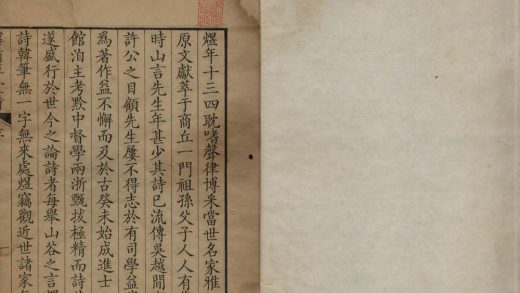 煜年十三四耽嗜聲律博釆當世名家雅
原文獻萃于商丘一門祖孫父子人人有
時山言先生年甚少其詩已流傳吳越間
許公之目顧先生屢不得志於有司學益
爲著作益不懈而及於古癸未始成進士
館洎主考黔中督學兩浙甄拔極精而詩
遂盛行於世今之論詩者每舉山谷之言
詩韓筆無一字無來處煜竊觀近世諸家
序